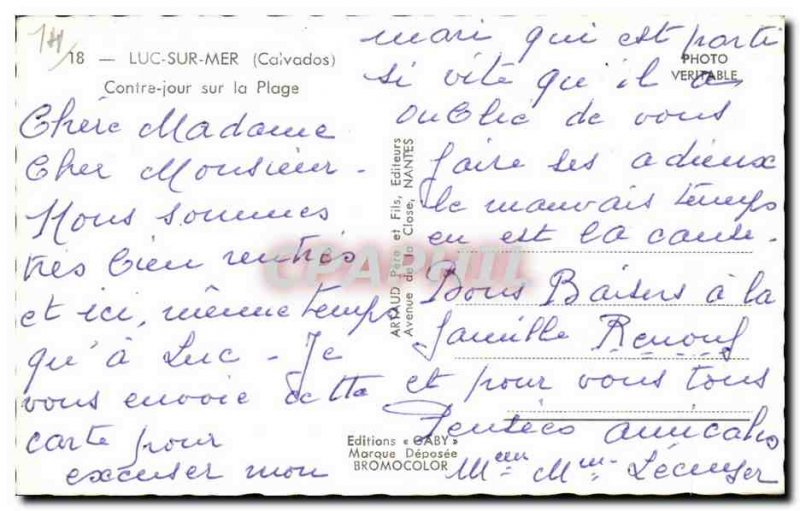 14/
18 — LUC-SUR-MER (Calvados)
Contre-jour sur la Plage
Chère Madame
Cher Monsieur -
Nous sommes
très bien rentrés
et ici, même temps
qu'à Luc - Je
vous envoie cette
carte pour
excuser mon
mari qui est parti
si vite qu'il a
oublié de vous
faire ses adieux
le mauvais temps
en est la cause.
Bons Baisers à la
famille Renouf
et pour vous tous
Pensées amicales
Mme
PHOTO
VERITABLE
ARTAUD Père et Fils, Editeurs
Avenue de la Close, NANTES
Editions « GABY »
Marque Déposée
BROMOCOLOR
CPAPHIL